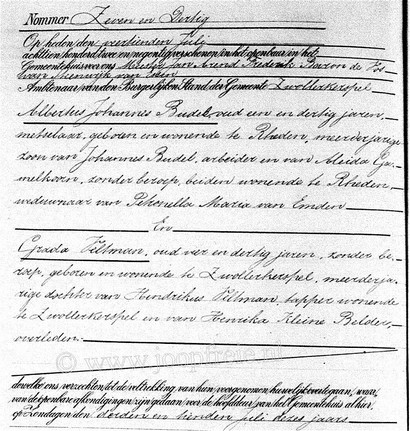 Nommer Zeven en Dertig
Op heden den veertienden Juli
achttien honderd twee en negentig verschenen in het openbaar in het
Gemeentehuis voor ons Meester Jan Arend Frederik Baron de Vos
van Steenwijk van Essen
Ambtenaar van den Burgerlijken Stand der Gemeente Zwollerkerspel
Albertus Johannes Budel, oud een en dertig jaren,
metselaar, geboren en wonende te Rheden, meerderjarige
zoon van Johannes Budel, arbeider en van Aleida Ga-
melkoorn, zonder beroep, beiden wonende te Rheden,
weduwnaar van Petronella Maria van Emden
En
Grada Viltman, oud vier en dertig jaren, zonder be-
roep, geboren en wonende te Zwollerkerspel, meerderja-
rige dochter van Hendrikus Viltman, tapper wonende
te Zwollerkerspel en van Henrika Kleine Belder,
overleden.
© www.jooptreie.nl
dewelke ons verzochten tot de voltrekking van hun voorgenomen huwelijk over te gaan, waar-
van de openbare afkondigingen zijn gedaan voor de hoofddeur van het Gemeentehuis alhier,
op Zondagen den derden en tienden Juli dezes jaars